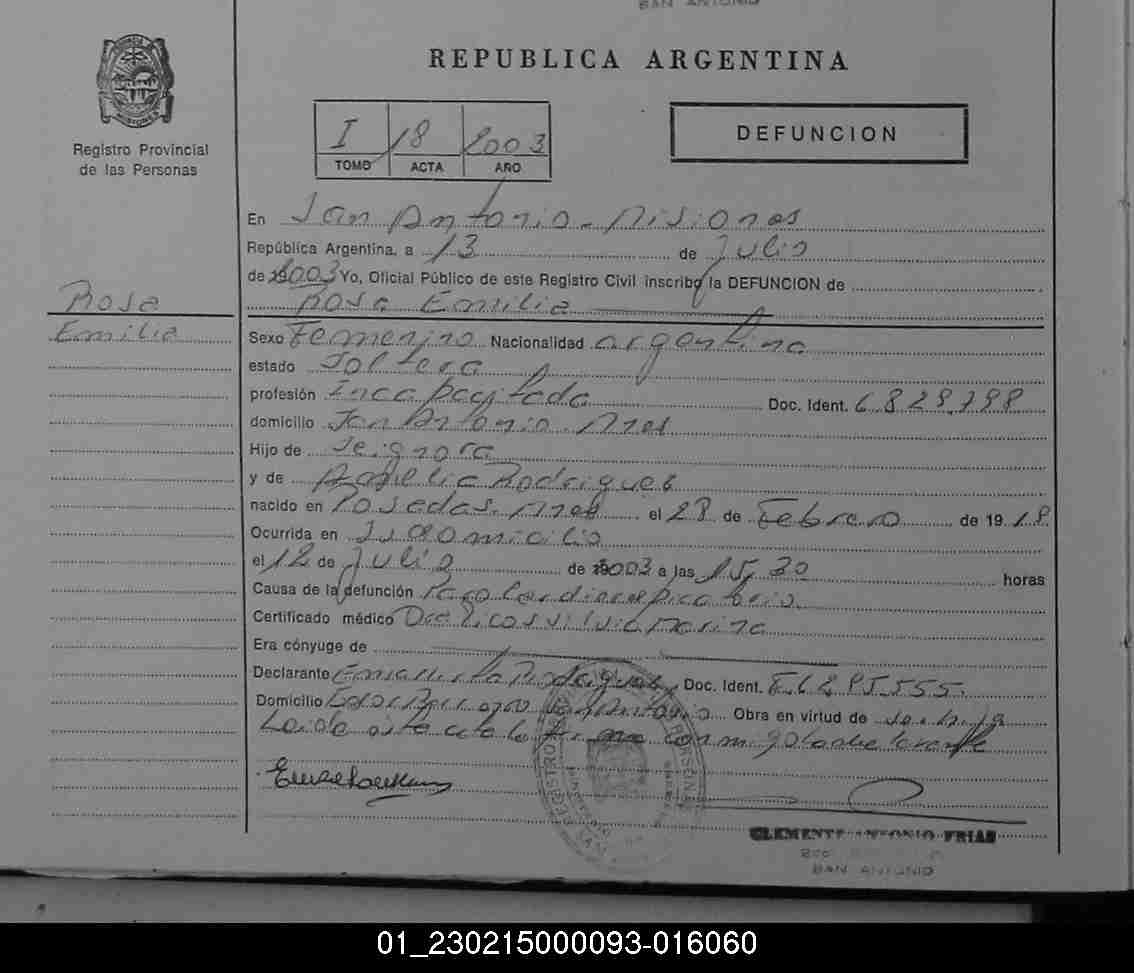 SAN ANTONIO
REPUBLICA ARGENTINA
MISIONES
I 18 2003
TOMO ACTA AÑO
DEFUNCION
Registro Provincial
de las Personas
En San Antonio - Misiones
República Argentina, a 13 de Julio
de 2003 Yo, Oficial Público de este Registro Civil inscribo la DEFUNCION de
Rosa Emilia
Rosa
Emilia
Sexo Femenino Nacionalidad argentina
estado Soltera
profesión Incapacitada Doc. Ident. 6.829.798
domicilio San Antonio. Mnes
Hijo de Se ignora
y de Rodriguez
nacido en Posadas. Mnes el 28 de Febrero de 1918
Ocurrida en Su Domicilio
el 12 de Julio de 2003 a las 15,30 horas
Causa de la defunción Paro Cardiorespiratorio
Certificado médico Dra
Era cónyuge de
Declarante Rodriguez Doc. Ident.
Domicilio San Antonio Obra en virtud de
Leida esta acta la
CLEMENTE ANTONIO FRIAS
SAN ANTONIO
01_230215000093-016060